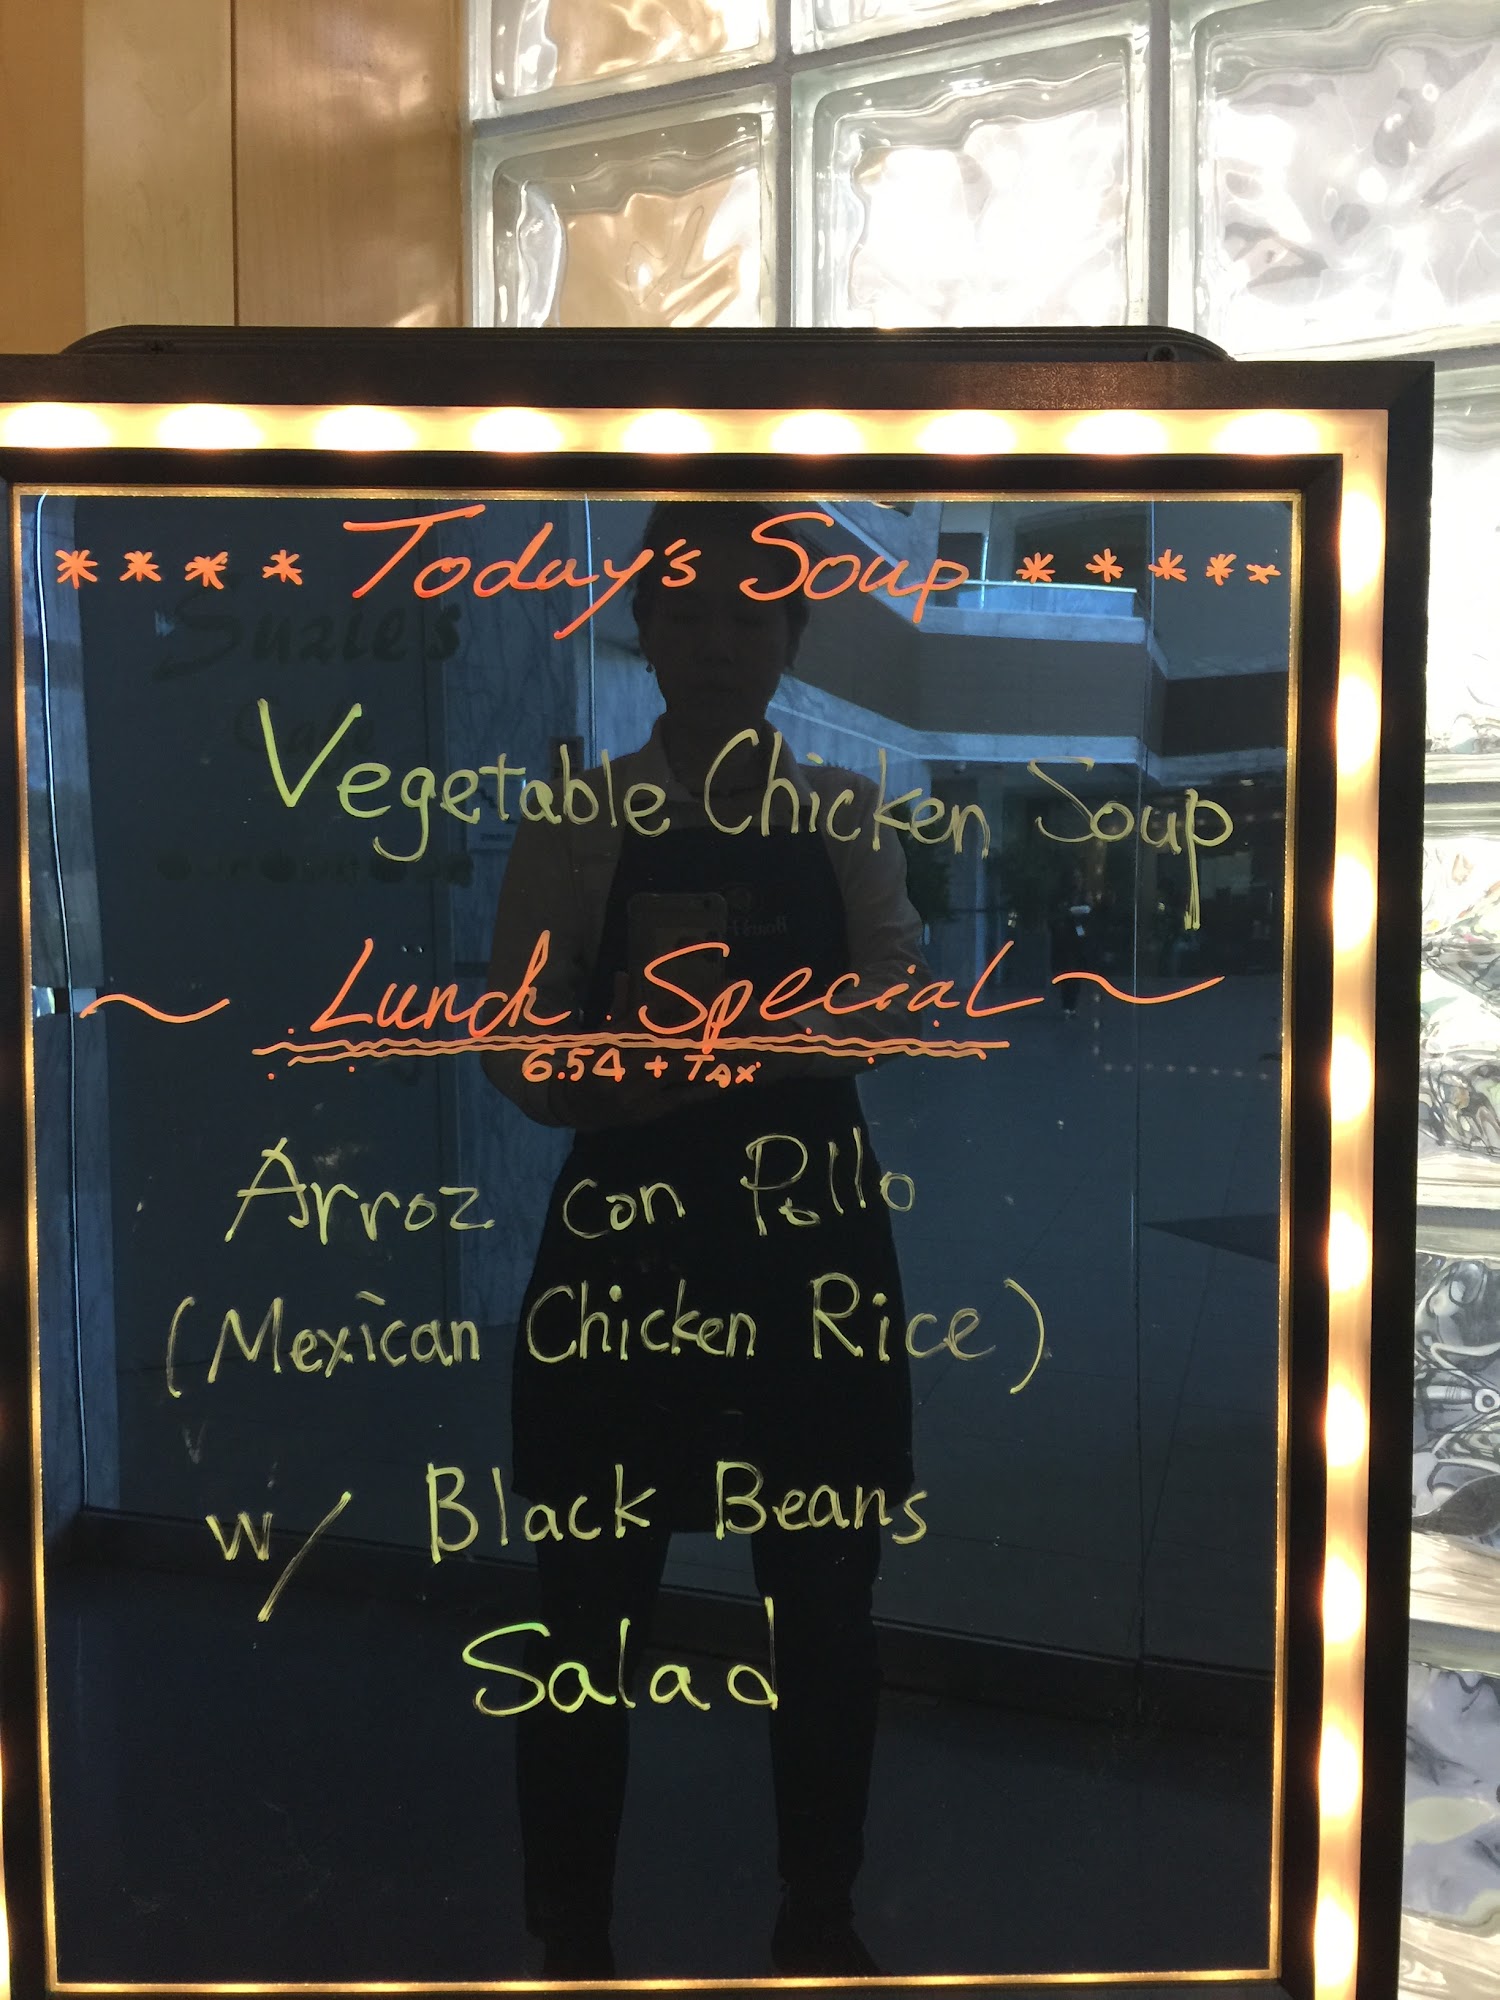 **** Today's Soup *****
Suzie's
Cafe
Vegetable Chicken Soup
~ Lunch Special ~
6.54 + Tax
Arroz con Pollo
(Mexican Chicken Rice)
w/ Black Beans
Salad